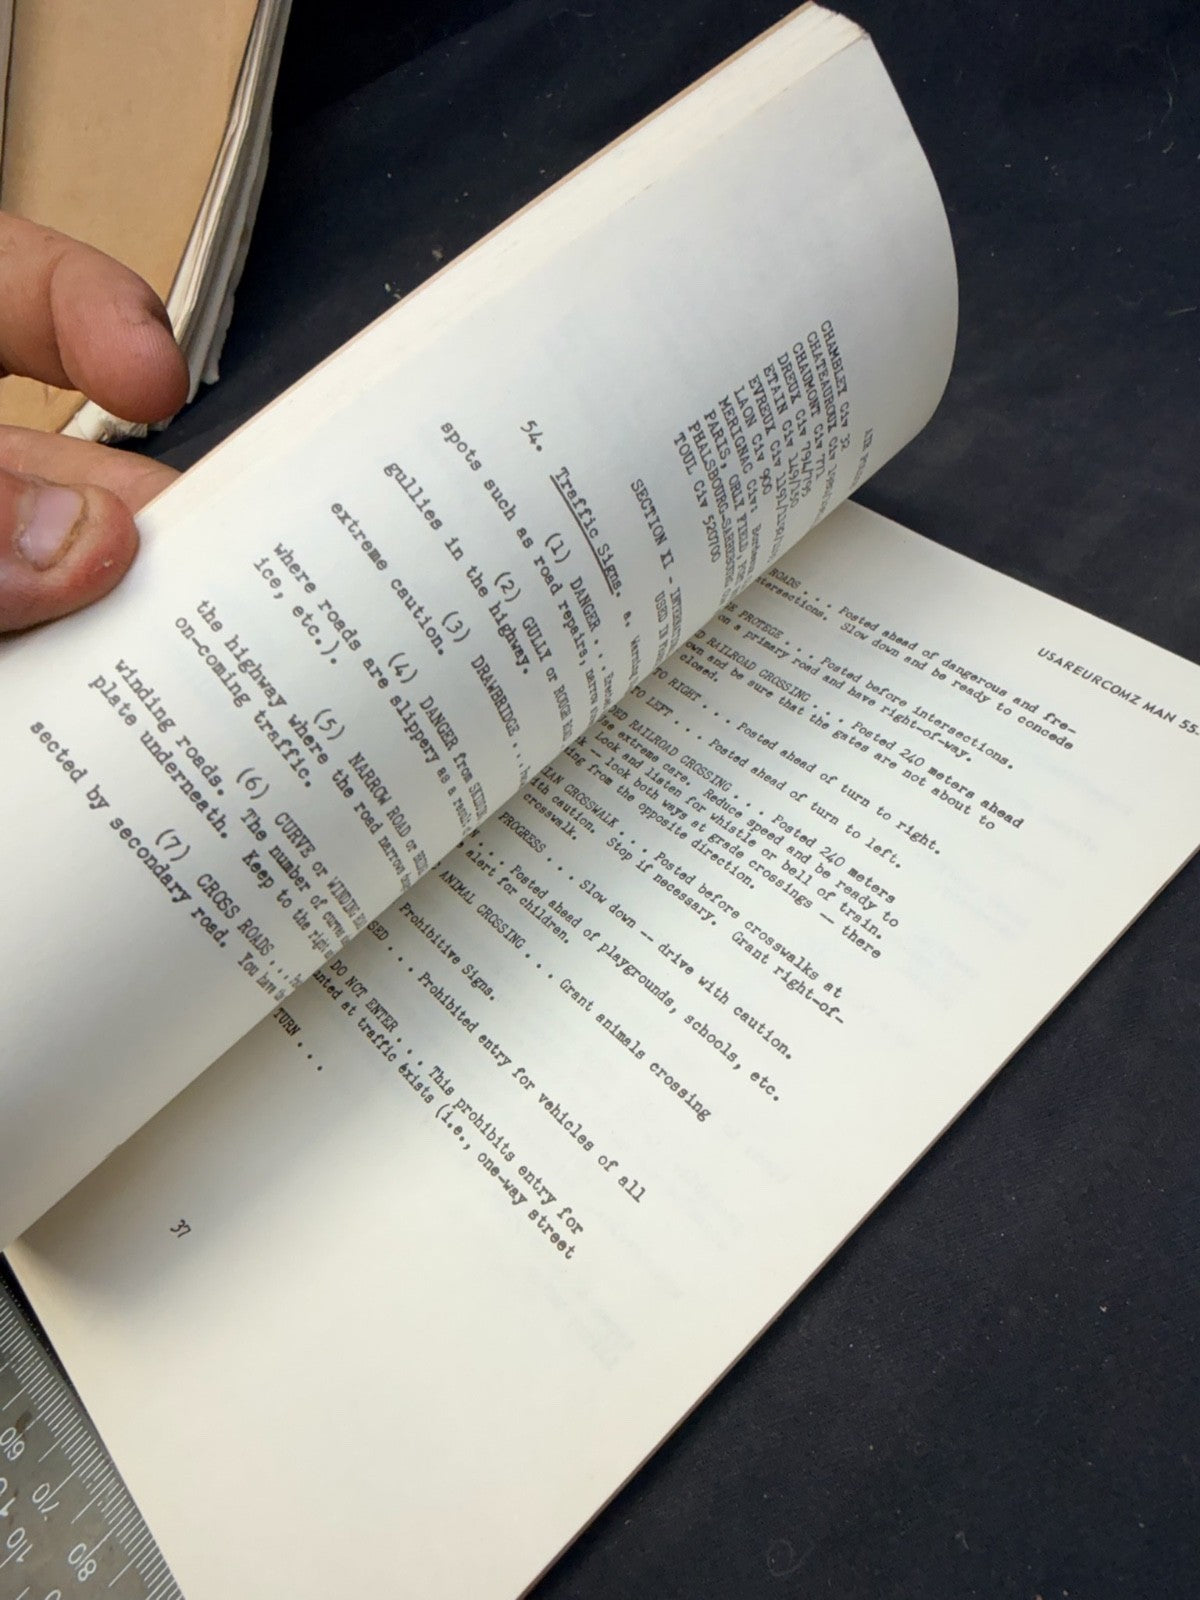 CHAMBLEY Civ 32
CHATEAUROUX Civ
CHAUMONT Civ 771
DREUX Civ 794/795
ETAIN Civ 149/150
EVREUX Civ
LAON Civ 900
MERIGNAC Civ:
PARIS, ORLY FIELD,
PHALSBOURG-SARREBOURG
TOUL Civ 520700
SECTION XI -
USED IN
54. Traffic Signs. a. Warning
(1) DANGER . . .
spots such as road repairs, narrow
(2) GULLY or ROUGH
gullies in the highway.
(3) DRAWBRIDGE . . .
extreme caution.
(4) DANGER from
where roads are slippery as a result
ice, etc.).
(5) NARROW ROAD or
the highway where the road narrows
on-coming traffic.
(6) CURVE or WINDING
winding roads. The number of curves
plate underneath. Keep to the right
(7) CROSS ROADS . . .
sected by secondary road. You have
USAREURCOMZ MAN 55-
ROADS . . . Posted ahead of dangerous and fre-
intersections. Slow down and be ready to concede
PROTEGE . . . Posted before intersections.
on a primary road and have right-of-way.
RAILROAD CROSSING . . . Posted 240 meters ahead
down and be sure that the gates are not about to
closed.
TO RIGHT . . . Posted ahead of turn to right.
TO LEFT . . . Posted ahead of turn to left.
RAILROAD CROSSING . . . Posted 240 meters
Use extreme care. Reduce speed and be ready to
Look and listen for whistle or bell of train.
-- look both ways at grade crossings -- there
from the opposite direction.
CROSSWALK . . . Posted before crosswalks at
with caution. Stop if necessary. Grant right-of-
crosswalk.
PROGRESS . . . Slow down -- drive with caution.
. . . Posted ahead of playgrounds, schools, etc.
alert for children.
ANIMAL CROSSING . . . Grant animals crossing
Prohibitive Signs.
. . . Prohibited entry for vehicles of all
DO NOT ENTER . . . This prohibits entry for
at traffic exists (i.e., one-way street
TURN . . .
37
60
70
80